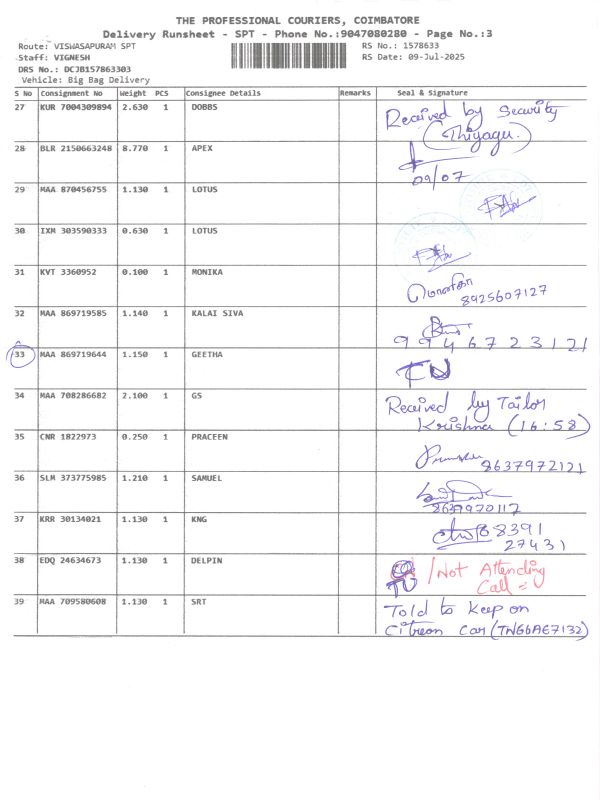 THE PROFESSIONAL COURIERS, COIMBATORE
Delivery Runsheet - SPT - Phone No.:9047080280 - Page No.:3
Route: VISWASAPURAM SPT RS No.: 1578633
Staff: VIGNESH RS Date: 09-Jul-2025
DRS No.: DCJB157863303
Vehicle: Big Bag Delivery
S No Consignment No Weight PCS Consignee Details Remarks Seal & Signature
27 KUR 7004309894 2.630 1 DOBBS Received by Security
(Thiyagu.)
28 BLR 2150663248 8.770 1 APEX
09/07
29 MAA 870456755 1.130 1 LOTUS
30 IXM 303590333 0.630 1 LOTUS
31 KVT 3360952 0.100 1 MONIKA
8925607127
32 MAA 869719585 1.140 1 KALAI SIVA
9 9 4 6 7 2 3 1 2 1
33 MAA 869719644 1.150 1 GEETHA
34 MAA 708286682 2.100 1 GS Received by Tailor
Krishna (16:58)
35 CNR 1822973 0.250 1 PRACEEN
8637972121
36 SLM 373775985 1.210 1 SAMUEL
8637970117
37 KRR 30134021 1.130 1 KNG 8391
27431
38 EDQ 24634673 1.130 1 DELPIN /Not Attending
Call =
39 MAA 709580608 1.130 1 SRT Told to keep on
Citreon Car (TN66AE7132)